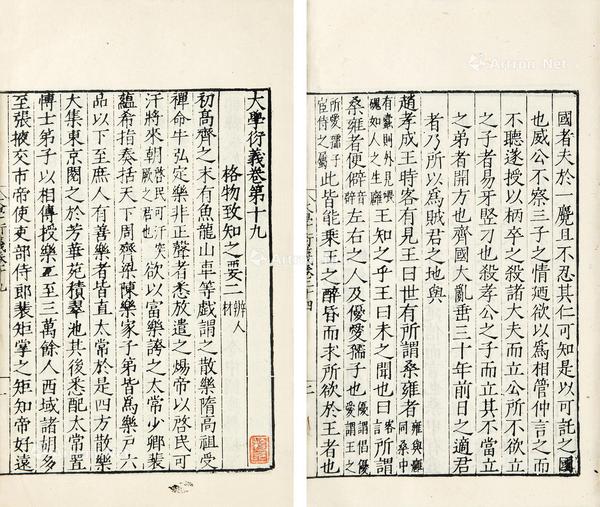 國者夫於一麑且不忍其仁可知是以可託之國
也威公不察三子之情廼欲以爲相管仲言之而
不聽遂授以柄卒之殺諸大夫而立公所不欲立
之子者易牙豎刁也殺孝公之子而立其不當立
之弟者開方也齊國大亂垂三十年前日之適君
者乃所以爲賊君之地與
趙孝成王時客有見王曰世有所謂桑雍者雍與癰同桑中
有蠹則外見磈如人之生癰王知之乎王曰未之聞也曰客言所謂
桑雍者便辟左右之人及優愛孺子也優謂倡優愛謂王之
所愛孺子謂宦侍之屬此皆能乘王之醉昏而求所欲於王者也
大學衍義卷第十九
格物致知之要二辨人材
初高齊之末有魚龍山車等戲謂之散樂隋高祖受
禪命牛弘定樂非正聲者悉放遣之煬帝以啓民可
汗將來朝啓民可汗突厥之君也欲以富樂誇之太常少卿裴
蘊希指奏括天下周齊梁陳樂家子弟皆爲樂戶六
品以下至庶人有善樂者皆直太常於是四方散樂
大集東京閱之於芳華苑積翠池其後悉配太常置
博士弟子以相傳授樂工至三萬餘人西域諸胡多
至張掖交市帝使吏部侍郎裴矩掌之矩知帝好遠
Artron.Net